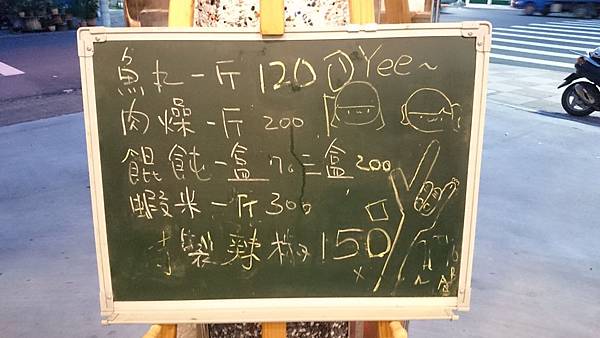 魚丸一斤 120 Yee~
肉燥一斤 200
餛飩一盒 70 三盒 200
蝦米一斤 300
手製辣椒 150